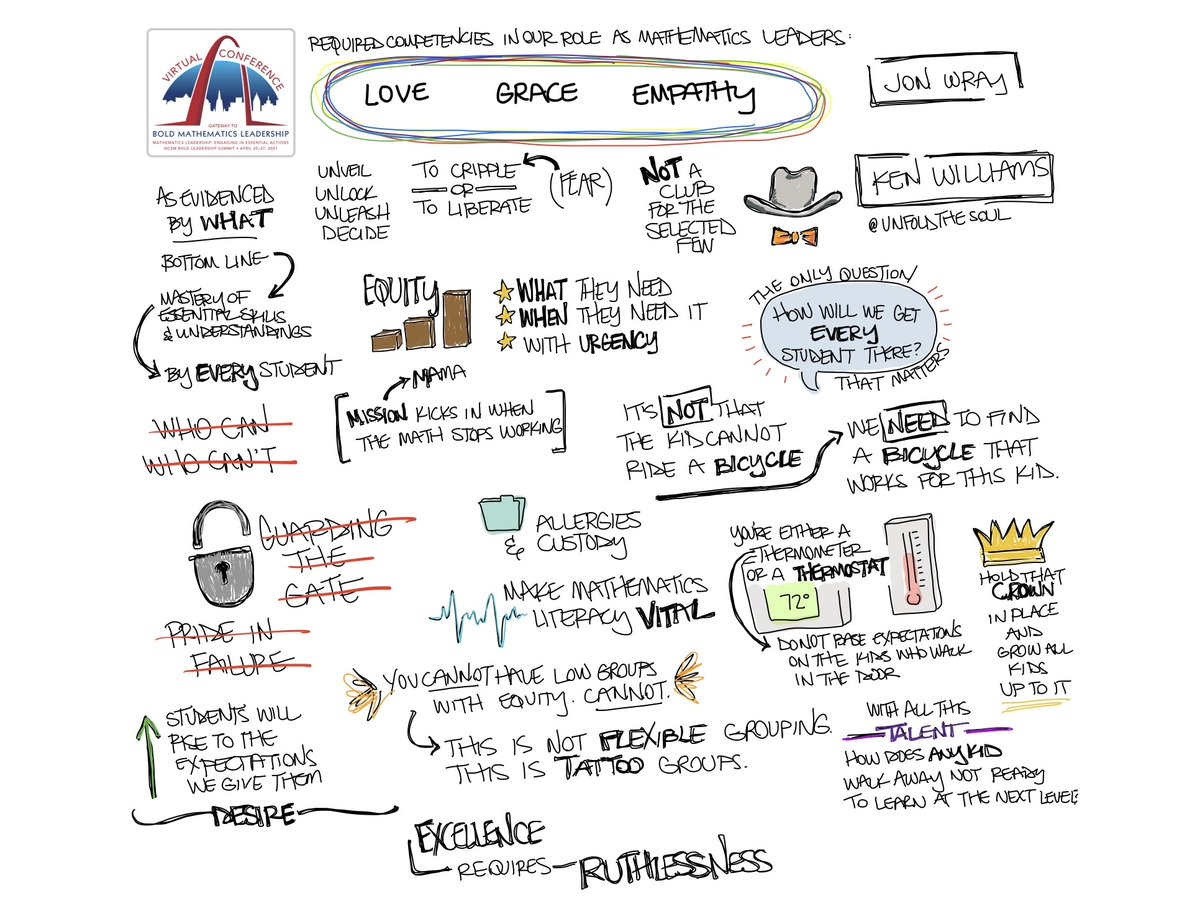 VIRTUAL CONFERENCE
GATEWAY TO
BOLD MATHEMATICS LEADERSHIP
MATHEMATICS LEADERSHIP: ENGAGING IN ESSENTIAL ACTIONS
NCSM BOLD LEADERSHIP SUMMIT • APRIL 25-27, 2021
REQUIRED COMPETENCIES IN OUR ROLE AS MATHEMATICS LEADERS:
LOVE GRACE EMPATHY
JON WRAY
KEN WILLIAMS
@UNFOLDTHESOUL
AS EVIDENCED
BY WHAT
BOTTOM LINE
MASTERY OF
ESSENTIAL SKILLS
& UNDERSTANDINGS
BY EVERY STUDENT
UNVEIL
UNLOCK
UNLEASH
DECIDE
TO CRIPPLE
OR
TO LIBERATE
(FEAR)
NOT A
CLUB
FOR THE
SELECTED
FEW
EQUITY
WHAT THEY NEED
WHEN THEY NEED IT
WITH URGENCY
THE ONLY QUESTION
HOW WILL WE GET
EVERY
STUDENT THERE?
THAT MATTERS
WHO CAN
WHO CAN'T
MAMA
[MISSION KICKS IN WHEN
THE MATH STOPS WORKING]
IT'S NOT THAT
THE KID CANNOT
RIDE A BICYCLE
WE NEED TO FIND
A BICYCLE THAT
WORKS FOR THIS KID.
GUARDING
THE
GATE
PRIDE IN
FAILURE
ALLERGIES
& CUSTODY
MAKE MATHEMATICS
LITERACY VITAL
YOU'RE EITHER A
THERMOMETER
OR A THERMOSTAT
72°
DO NOT BASE EXPECTATIONS
ON THE KIDS WHO WALK
IN THE DOOR
HOLD THAT
CROWN
IN PLACE
AND
GROW ALL
KIDS
UP TO IT
YOU CANNOT HAVE LOW GROUPS
WITH EQUITY. CANNOT.
THIS IS NOT FLEXIBLE GROUPING.
THIS IS TATTOO GROUPS.
STUDENTS WILL
RISE TO THE
EXPECTATIONS
WE GIVE THEM
DESIRE
WITH ALL THIS
TALENT
HOW DOES ANY KID
WALK AWAY NOT READY
TO LEARN AT THE NEXT LEVEL?
EXCELLENCE
REQUIRES RUTHLESSNESS